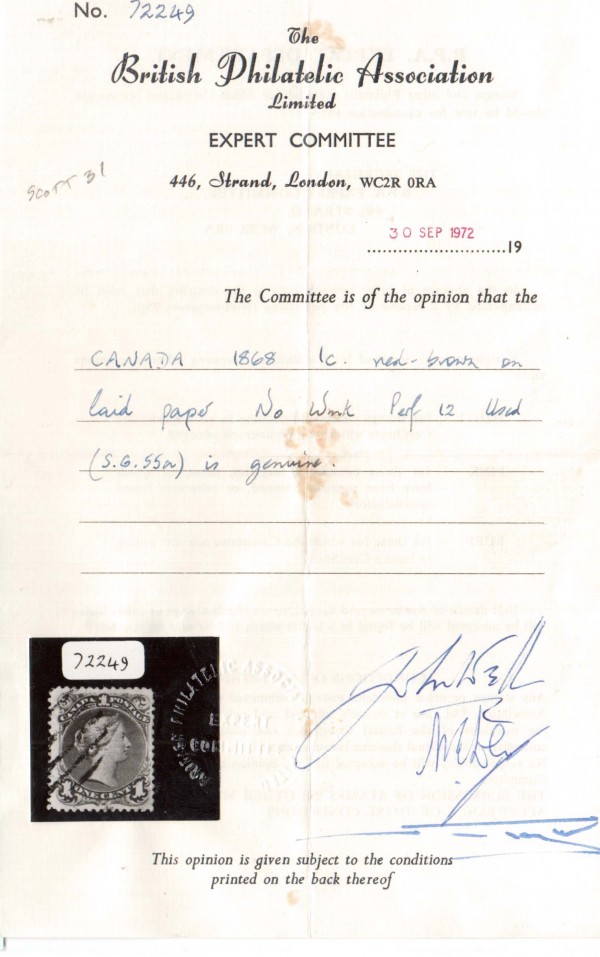 No. 72249
The
British Philatelic Association
Limited
EXPERT COMMITTEE
SCOTT 31
446, Strand, London, WC2R 0RA
30 SEP 1972
19
The Committee is of the opinion that the
CANADA 1868 1c. red-brown on
laid paper No Wmk Perf 12 Used
(S.G.55a) is genuine.
72249
CANADA 1 POSTAGE
1 ONE CENT 1
BRITISH PHILATELIC ASSOC
EXPERT
This opinion is given subject to the conditions
printed on the back thereof